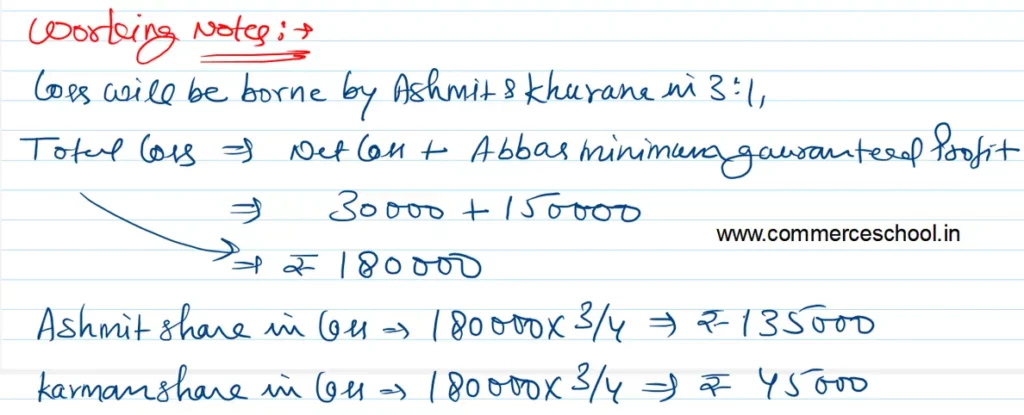 Working Notes:→
Loss will be borne by Ashmit & Khurana in 3:1,
Total Loss ⇒ Net Loss + Abbas minimum gauranteed Profit
⇒ 30000 + 150000
www.commerceschool.in
⇒ ₹ 180000
Ashmit share in Loss → 180000x 3/4 ⇒ ₹ 135000
karman share in Loss → 180000x 3/4 ⇒ ₹ 45000